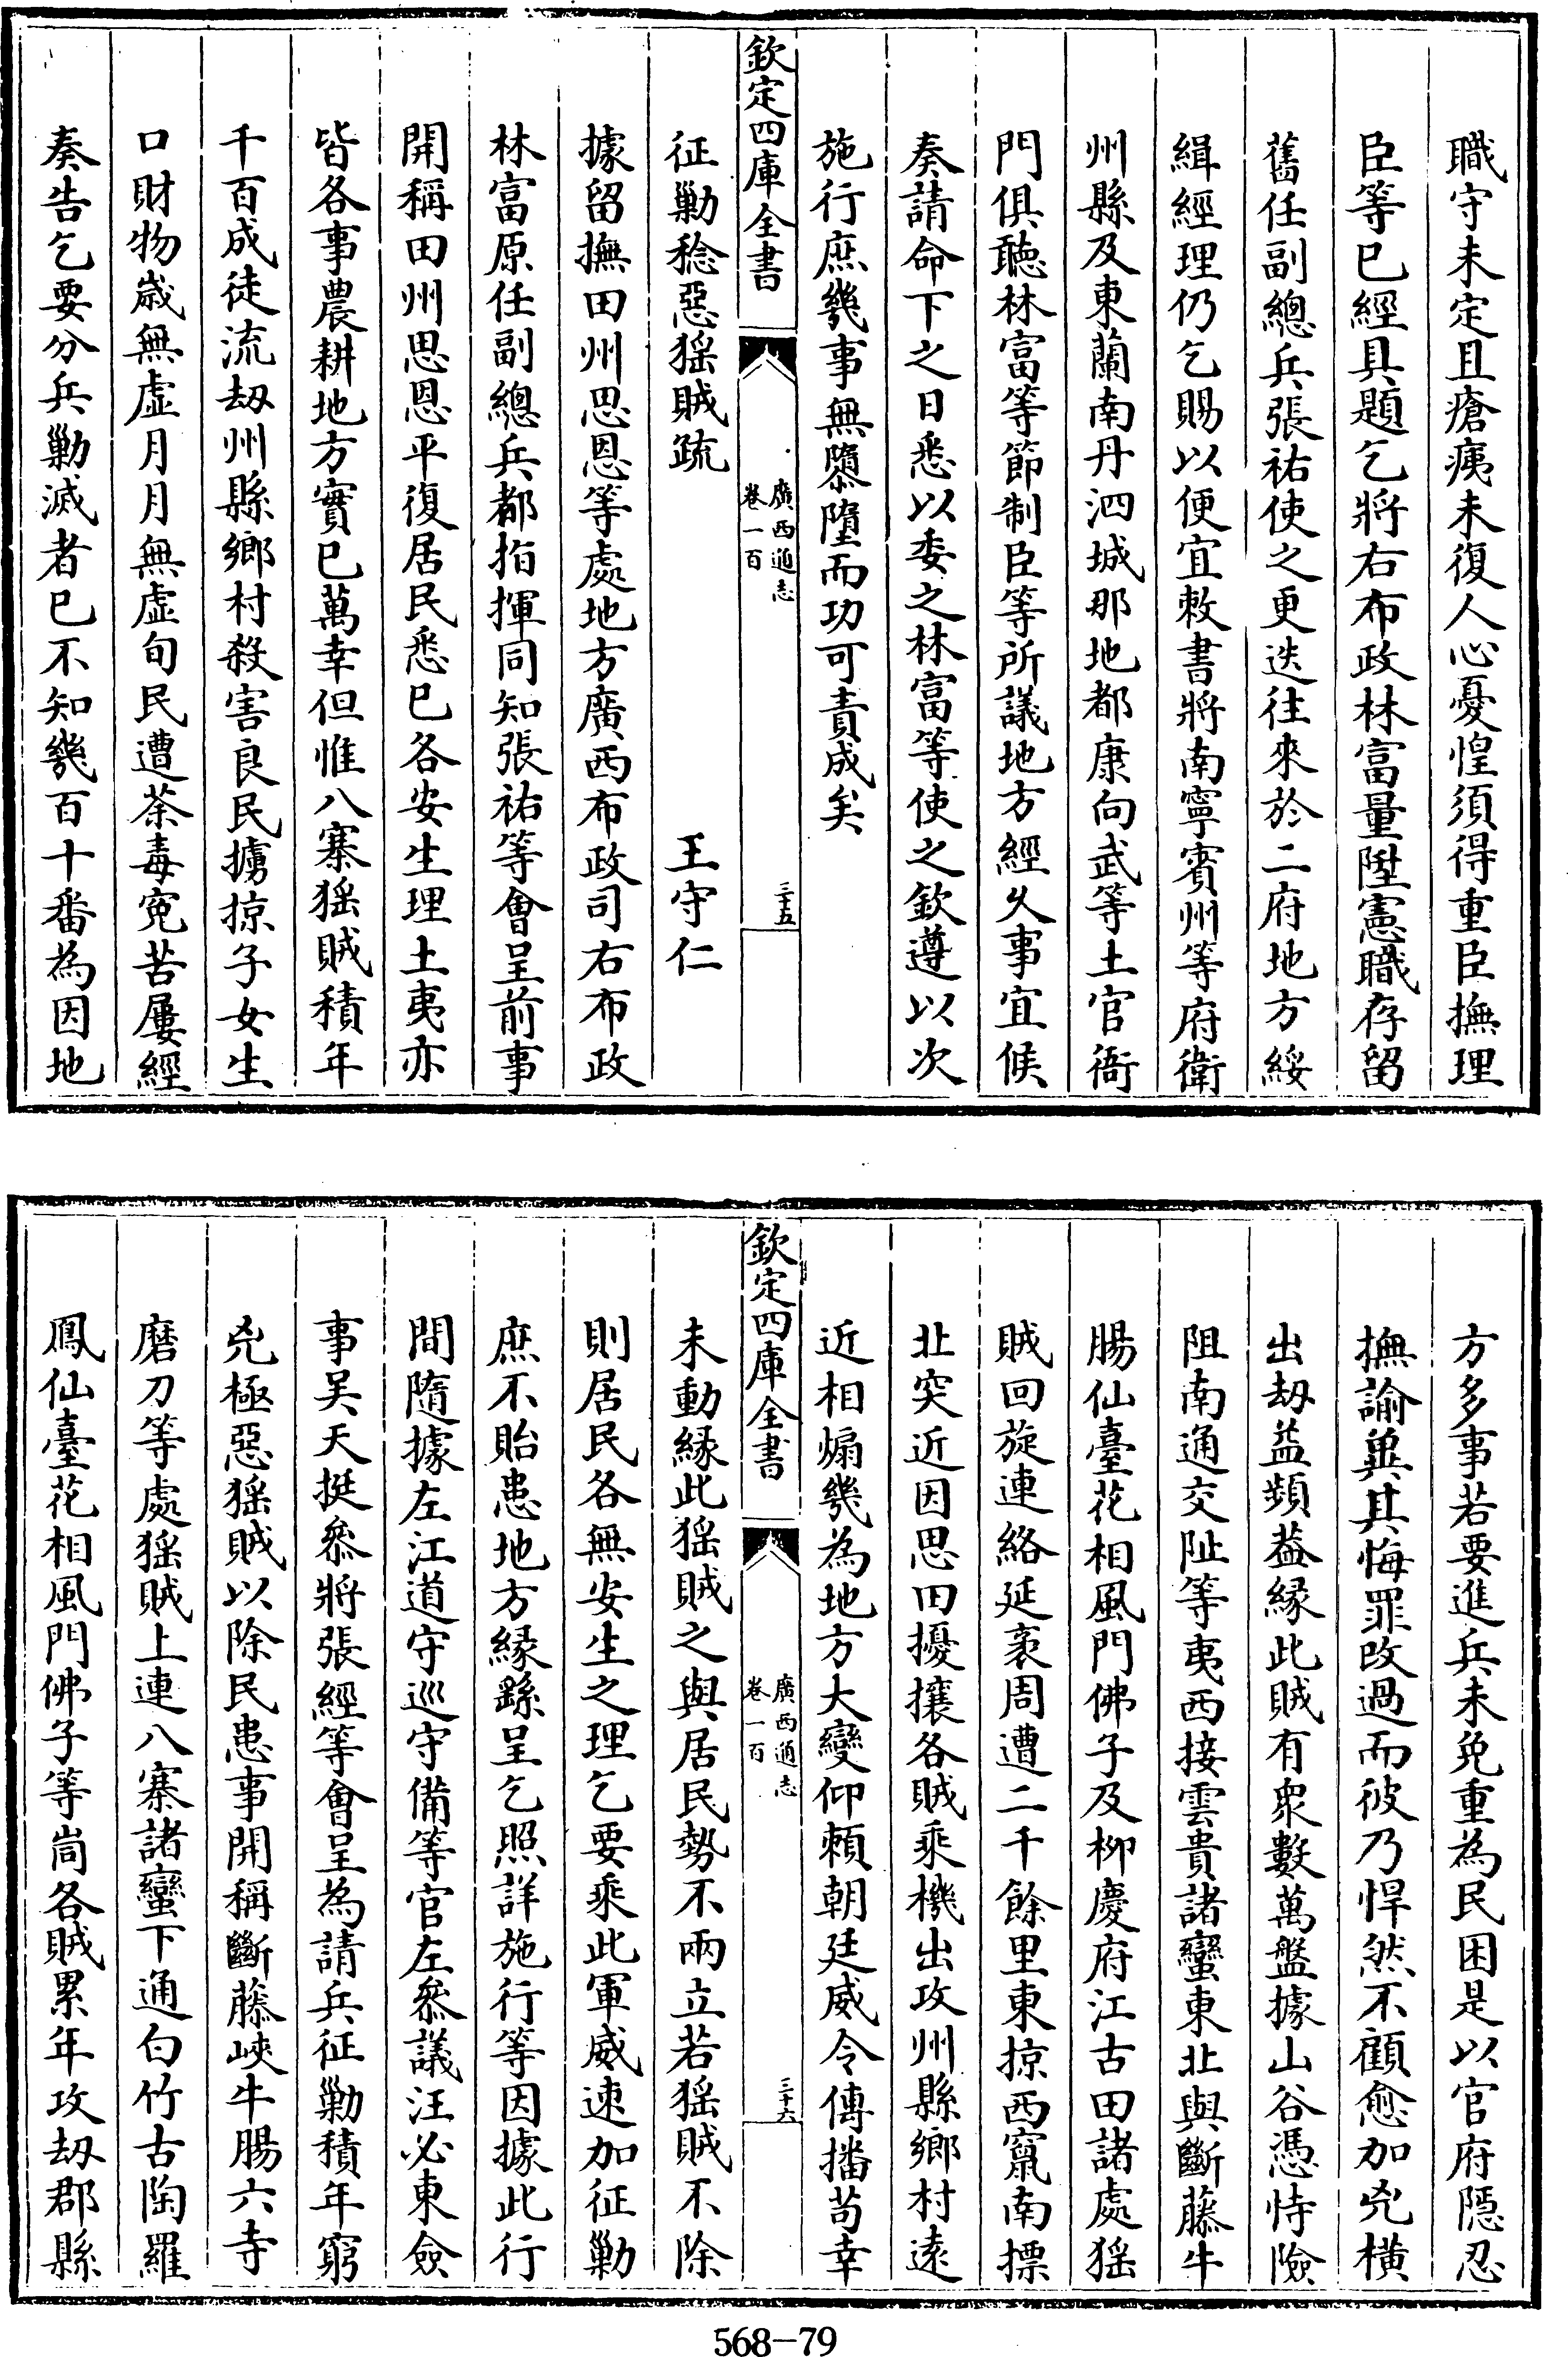 職守未定且瘡痍未復人心憂惶須得重臣撫理
臣等已經具題乞將右布政林富量陞憲職存留
舊任副總兵張祐使之更迭往來於二府地方綏
緝經理仍乞賜以便宜敕書將南寧賓州等府衛
州縣及東蘭南丹泗城那地都康向武等土官衙
門俱聽林富等節制臣等所議地方經久事宜候
奏請命下之日悉以委之林富等使之欽遵以次
施行庶幾事無隳墮而功可責成矣
欽定四庫全書
廣西通志
卷一百
三十五
征勦稔惡猺賊疏
王守仁
據留撫田州思恩等處地方廣西布政司右布政
林富原任副總兵都指揮同知張祐等會呈前事
開稱田州思恩平復居民悉已各安生理土夷亦
皆各事農耕地方實已萬幸但惟八寨猺賊積年
千百成徒流刼州縣鄉村殺害良民擄掠子女生
口財物歲無虛月月無虛旬民遭荼毒寃苦屢經
奏告乞要分兵勦滅者已不知幾百十番為因地
方多事若要進兵未免重為民困是以官府隱忍
撫諭兾其悔罪改過而彼乃悍然不顧愈加兇橫
出刼益頻葢緣此賊有衆數萬盤據山谷憑恃險
阻南通交阯等夷西接雲貴諸蠻東北與斷藤牛
腸仙臺花相風門佛子及柳慶府江古田諸處猺
賊回旋連絡延袤周遭二千餘里東掠西竄南摽
北突近因思田擾攘各賊乘機出攻州縣鄉村遠
近相煽幾為地方大變仰賴朝廷威令傳播苟幸
欽定四庫全書
廣西通志
卷一百
三十六
未動緣此猺賊之與居民勢不兩立若猺賊不除
則居民各無安生之理乞要乘此軍威速加征勦
庶不貽患地方緣繇呈乞照詳施行等因據此行
間隨據左江道守巡守備等官左叅議汪必東僉
事吴天挺叅將張經等會呈為請兵征勦積年窮
兇極惡猺賊以除民患事開稱斷藤峽牛腸六寺
磨刀等處猺賊上連八寨諸蠻下通白竹古陶羅
鳳仙臺花相風門佛子等峝各賊累年攻刼郡縣
568—79